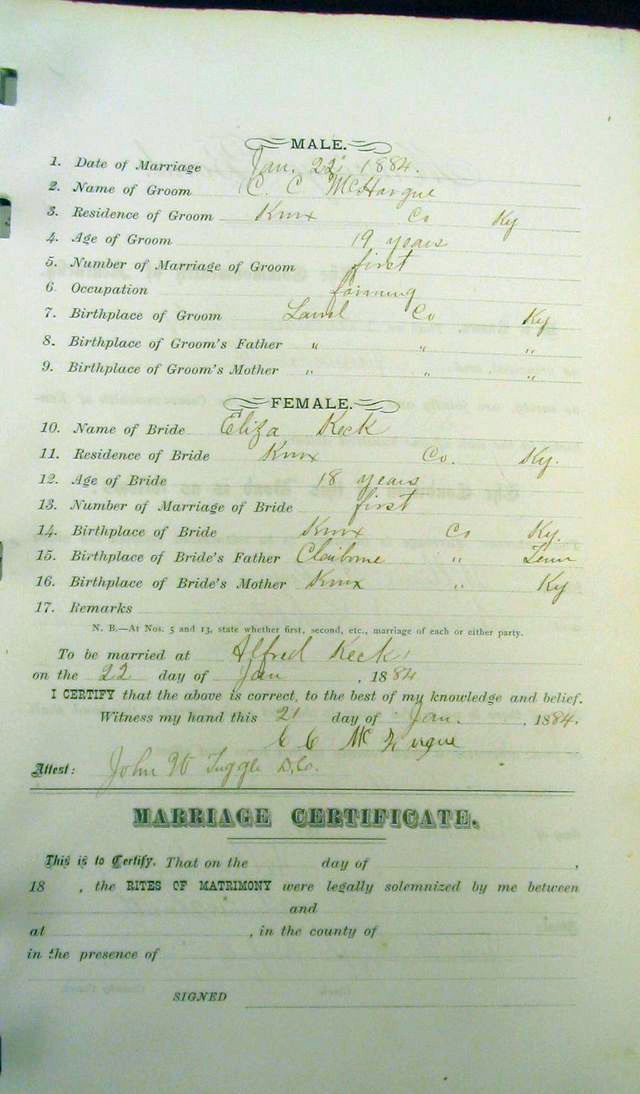 MALE.
1. Date of Marriage Jan. 22 1884.
2. Name of Groom C. C McHargue
3. Residence of Groom Knox Co Ky
4. Age of Groom 19 years
5. Number of Marriage of Groom first
6. Occupation farming
7. Birthplace of Groom Laurel Co Ky
8. Birthplace of Groom's Father " " "
9. Birthplace of Groom's Mother " " "
FEMALE.
10. Name of Bride Eliza Keck
11. Residence of Bride Knox Co. Ky.
12. Age of Bride 18 years
13. Number of Marriage of Bride first
14. Birthplace of Bride Knox Co Ky.
15. Birthplace of Bride's Father Claiborne " Tenn
16. Birthplace of Bride's Mother Knox " Ky
17. Remarks
N. B.—At Nos. 5 and 13, state whether first, second, etc., marriage of each or either party.
To be married at Alfred Keck's
on the 22 day of Jan , 1884
I CERTIFY that the above is correct, to the best of my knowledge and belief.
Witness my hand this 21 day of Jan. , 1884.
C C Mc
Attest: John W Tuggle D.C.
MARRIAGE CERTIFICATE.
This is to Certify, That on the day of ,
18 , the RITES OF MATRIMONY were legally solemnized by me between
and
at , in the county of
in the presence of
SIGNED